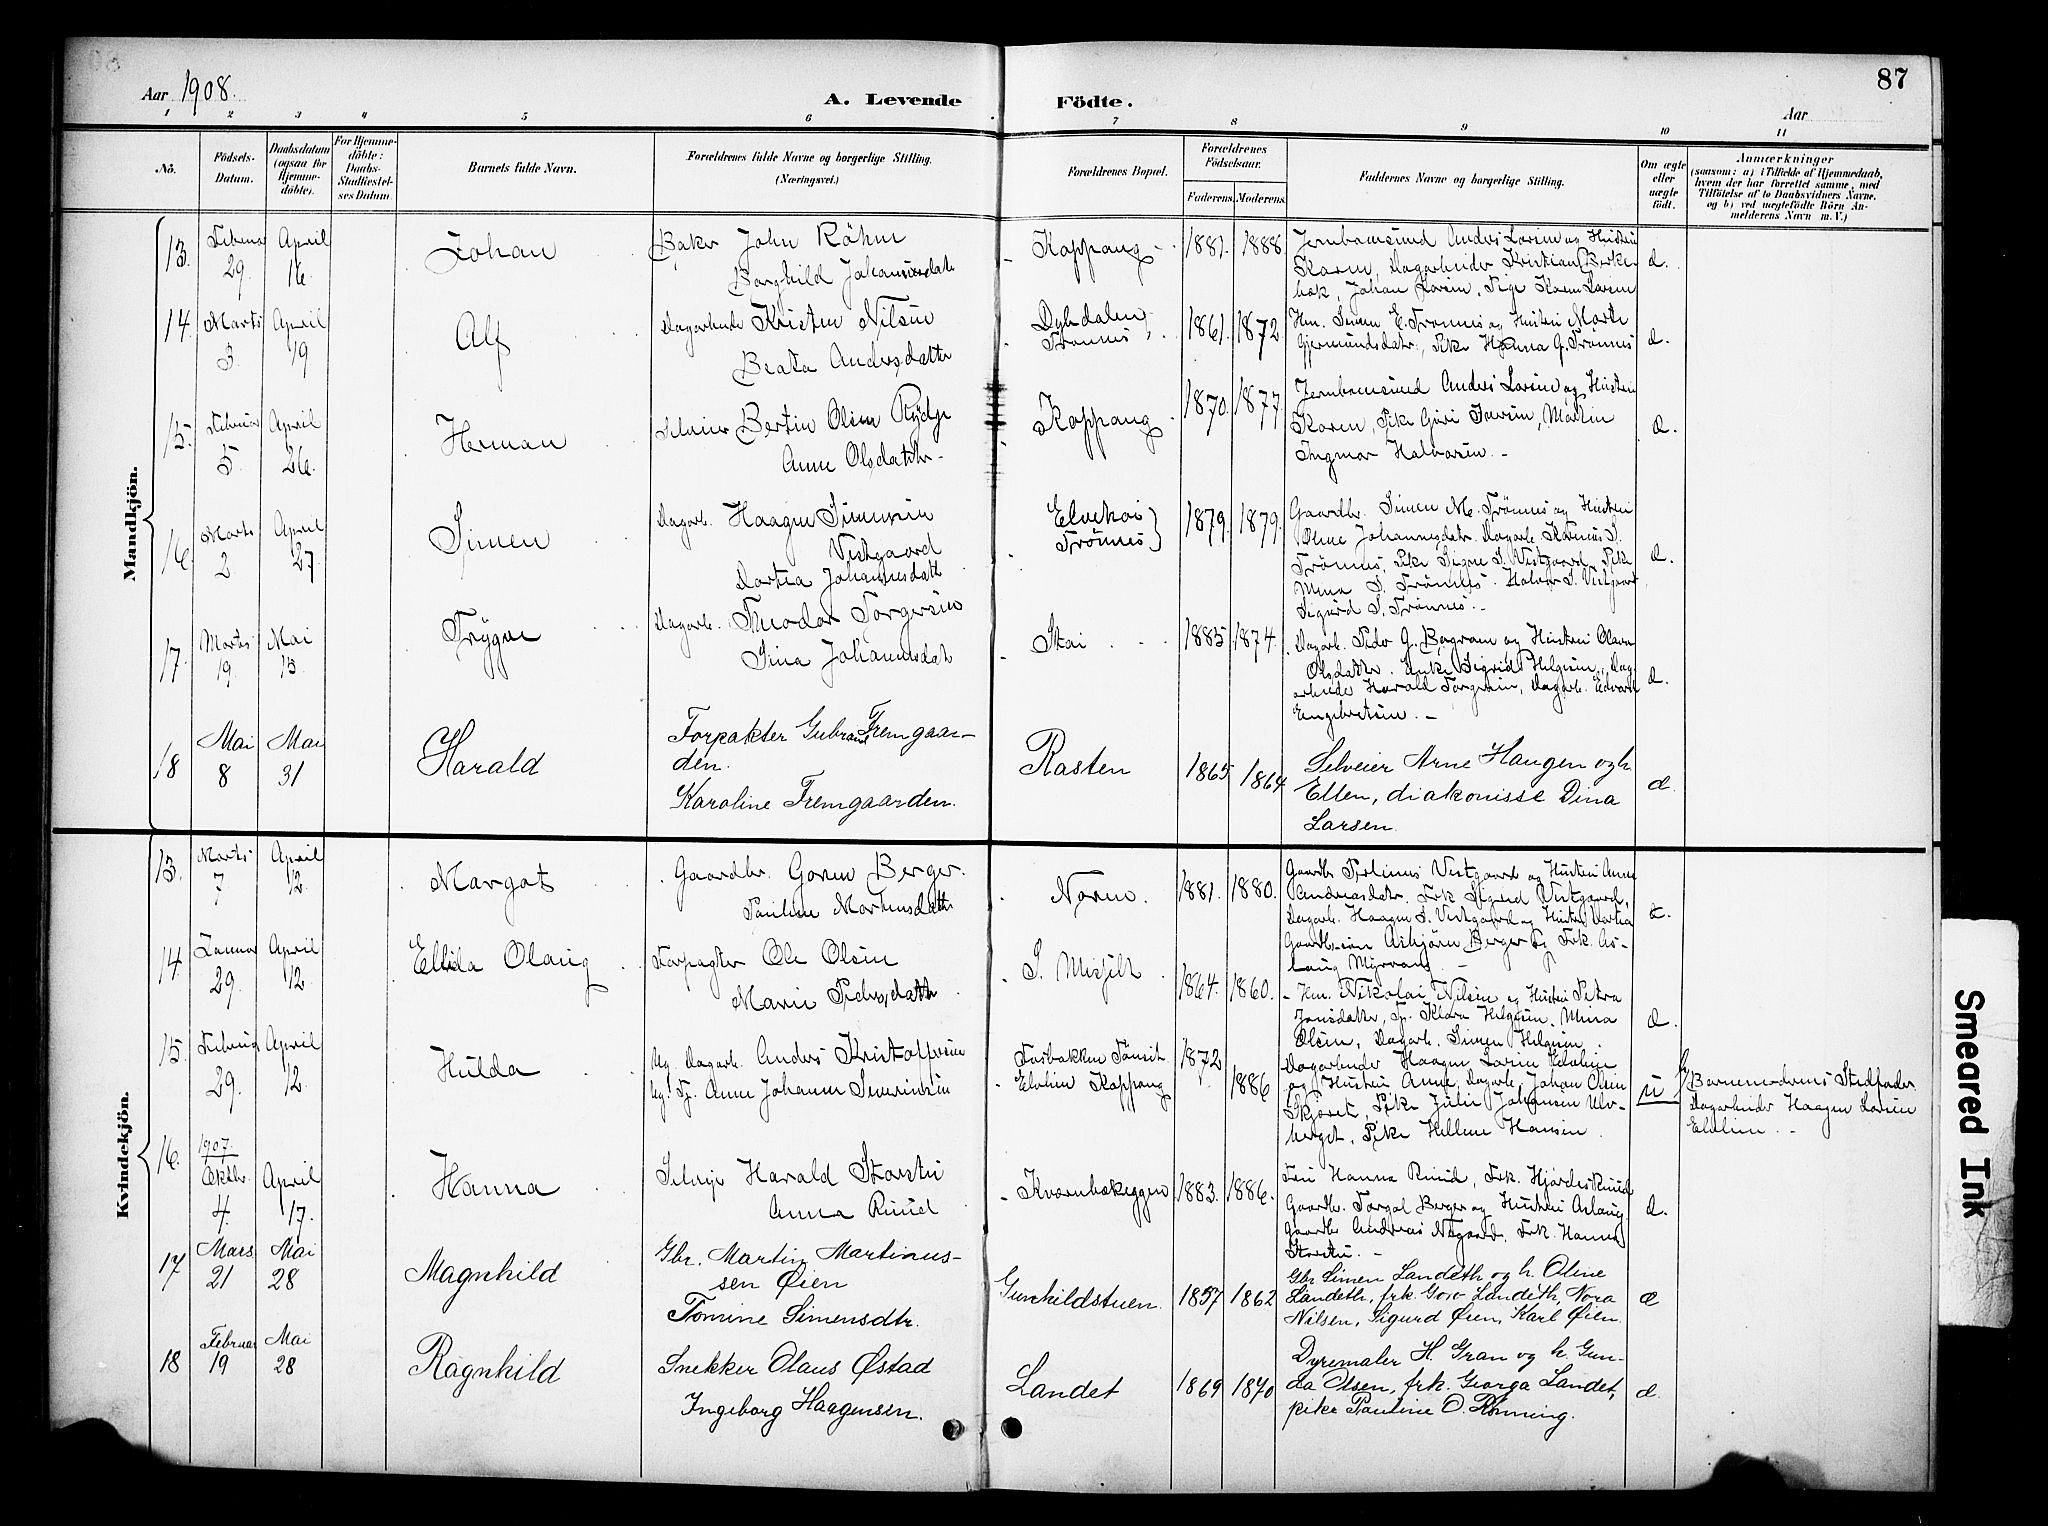 87
Aar 1908.
A. Levende Födte.
Aar
1 2 3 4 5 6 7 8 9 10 11
No.
Födsels-Datum.
Daabsdatum (ogsaa for Hjemme-döbte).
For Hjemme-döbte: Daabs-Stadfæstelses Datum.
Barnets fulde Navn.
Forældrenes fulde Navne og borgerlige Stilling. (Næringsvei.)
Forældrenes Bopæl.
Forældrenes Födselsaar.
Faderens. Moderens.
Faddernes Navne og borgerlige Stilling.
Om ægte eller uægte födt.
Anmærkninger
(saasom: a) i Tilfælde af Hjemmedaab,
hvem der har forrettet samme, med
Tilföielse af to Daabsvidners Navne.
og b) ved uægtefödte Börn An-
melderens Navn m. V.)
Mandkjön.
13. Februar 29. April 16.
Johan
Bager John Röhne
Borghild Johansesdatr
Koppang
1881. 1888.
Anders Larsen og Hustru
Karen, Dagarbeider Kristian Birke-
bæk, Johan Larsen, Pige Karen Larsen
æ.
14. Marts 3. April 19
Alf
Dagarbeide Kristen Nilsen
Beata Andersdatter
Dybdalen, Trønnes
1861. 1872.
Hm. Simen E. Trønnes og Hustru Marte
Gjermundsdatr, Pike Hanna G. Trønnes
æ.
15. Februar 5. April 26.
Herman
Selveier Bertin Olsen
Anne Olsdatter
Koppang
1870. 1877.
Anders Larsen og Hustru
Karen, Pike Guri Iversen, Martin
Ingmar Halvorsen.
æ.
16. Marts 2 April 27
Simen
Dagarb. Haagen Simensen
Vestgaard
Dortea Johannesdatr
Elvekai Trønnes
1879. 1879.
Gaardbr. Simen M. Trønnes og Hustru
Oline Johannesdatr. Dagarb. Karenius S.
Trønnes, Pike Signe S. Vestgaard, Pike
Mina S. Trønnes. Halvor S. Vestgaard
Sigurd S. Trønnes.
æ.
17. Marts 19. Mai 15.
Trygve
Dagarb. Theodor Torgersen
Sina Johannesdatr
Stai
1885 1874.
Dagarb. Peder G. Bergram og Hustru Olava
Olsdatter. Enke Sigrid Helgesen, Dag-
arbeide Harald Torgersen, Dagarb. Edvard
Engebretsen.
æ.
18 Mai 8 Mai 31
Harald
Forpakter Gubrand Fremgaar-
den.
Karoline Fremgaarden.
Rasten
1865. 1864
Selveier Arne Haugen og h.
Ellen, diakonisse Dina
Larsen.
æ.
Kvindekjön.
13. Marts 7 April 12.
Margot
Gaardbr. Goren Berger.
Pauline Mortensdatter
Noren.
1881. 1880.
Gaardbr Vestgaard og Hustru Anne
Andreasdatr. Frk Sigrid Vestgaard,
Dagarb. Haagen S. Vestgaard og Hustru Dortea
Gaardbr.søn Asbjørn Berger og Frk. As-
laug Myrvang.
æ.
14. Januar 29. April 12.
Ellida Olaug
Forpagter Ole Olsen
Marie Pedersdatter
S. Misjilt
1864. 1860.
Hm. Nikolai Nilsen og Hustru Petra
Jonsdatter, Pg. Klara Helgesen, Mina
Olsen, Dagarb. Simen Helgesen.
æ.
15. Februar 29. April 12.
Hulda
Ug. Dagarb. Anders Kristoffersen
Ug. Pg. Anne Johanne Severinsen
Elvheim Koppang
1872 1886
Dagarbeider Haagen Larsen Elvheim
og Hustru Anne, Dagarb. Johan Olsen
Skjøret, Pike Julie Johansen Ulv-
berget, Pike Hellene Hansen.
u
Barnemoderens Stedfader
Dagarbeider Haagen Larsen
Elvheim.
16. 1907. Oktbr. 4. April 17.
Hanna
Selveje Harald Storstu
Anna Ruud
Kværnbækeggen
1883. 1886.
Fru Hanna Ruud, Frk. Hjørdis Ruud
Gaardbr. Torgal Berger og Hustru Aslaug
Gaardbr. Andreas Nygaard. Frk. Hanna
Storstu.
æ.
17 Mars 21 Mai 28
Magnhild
Gbr. Martin Martinus-
sen Øien
Tomine Simensdtr.
Gunhildstuen.
1857 1862
Gbr. Simen Landeth og h. Oline
Landeth, frk. Goro Landeth, Nora
Nilsen, Sigurd Øien, Karl Øien
æ
18 Februar 19 Mai 28
Ragnhild
Snekker Olaus Østad
Ingeborg Haagensen.
Landet
1869 1870
Dyremaler H. Gran og h. Gun-
da Olsen, frk. Georga Landet,
pike Pauline O. Rønning.
æ.
Smeared Ink